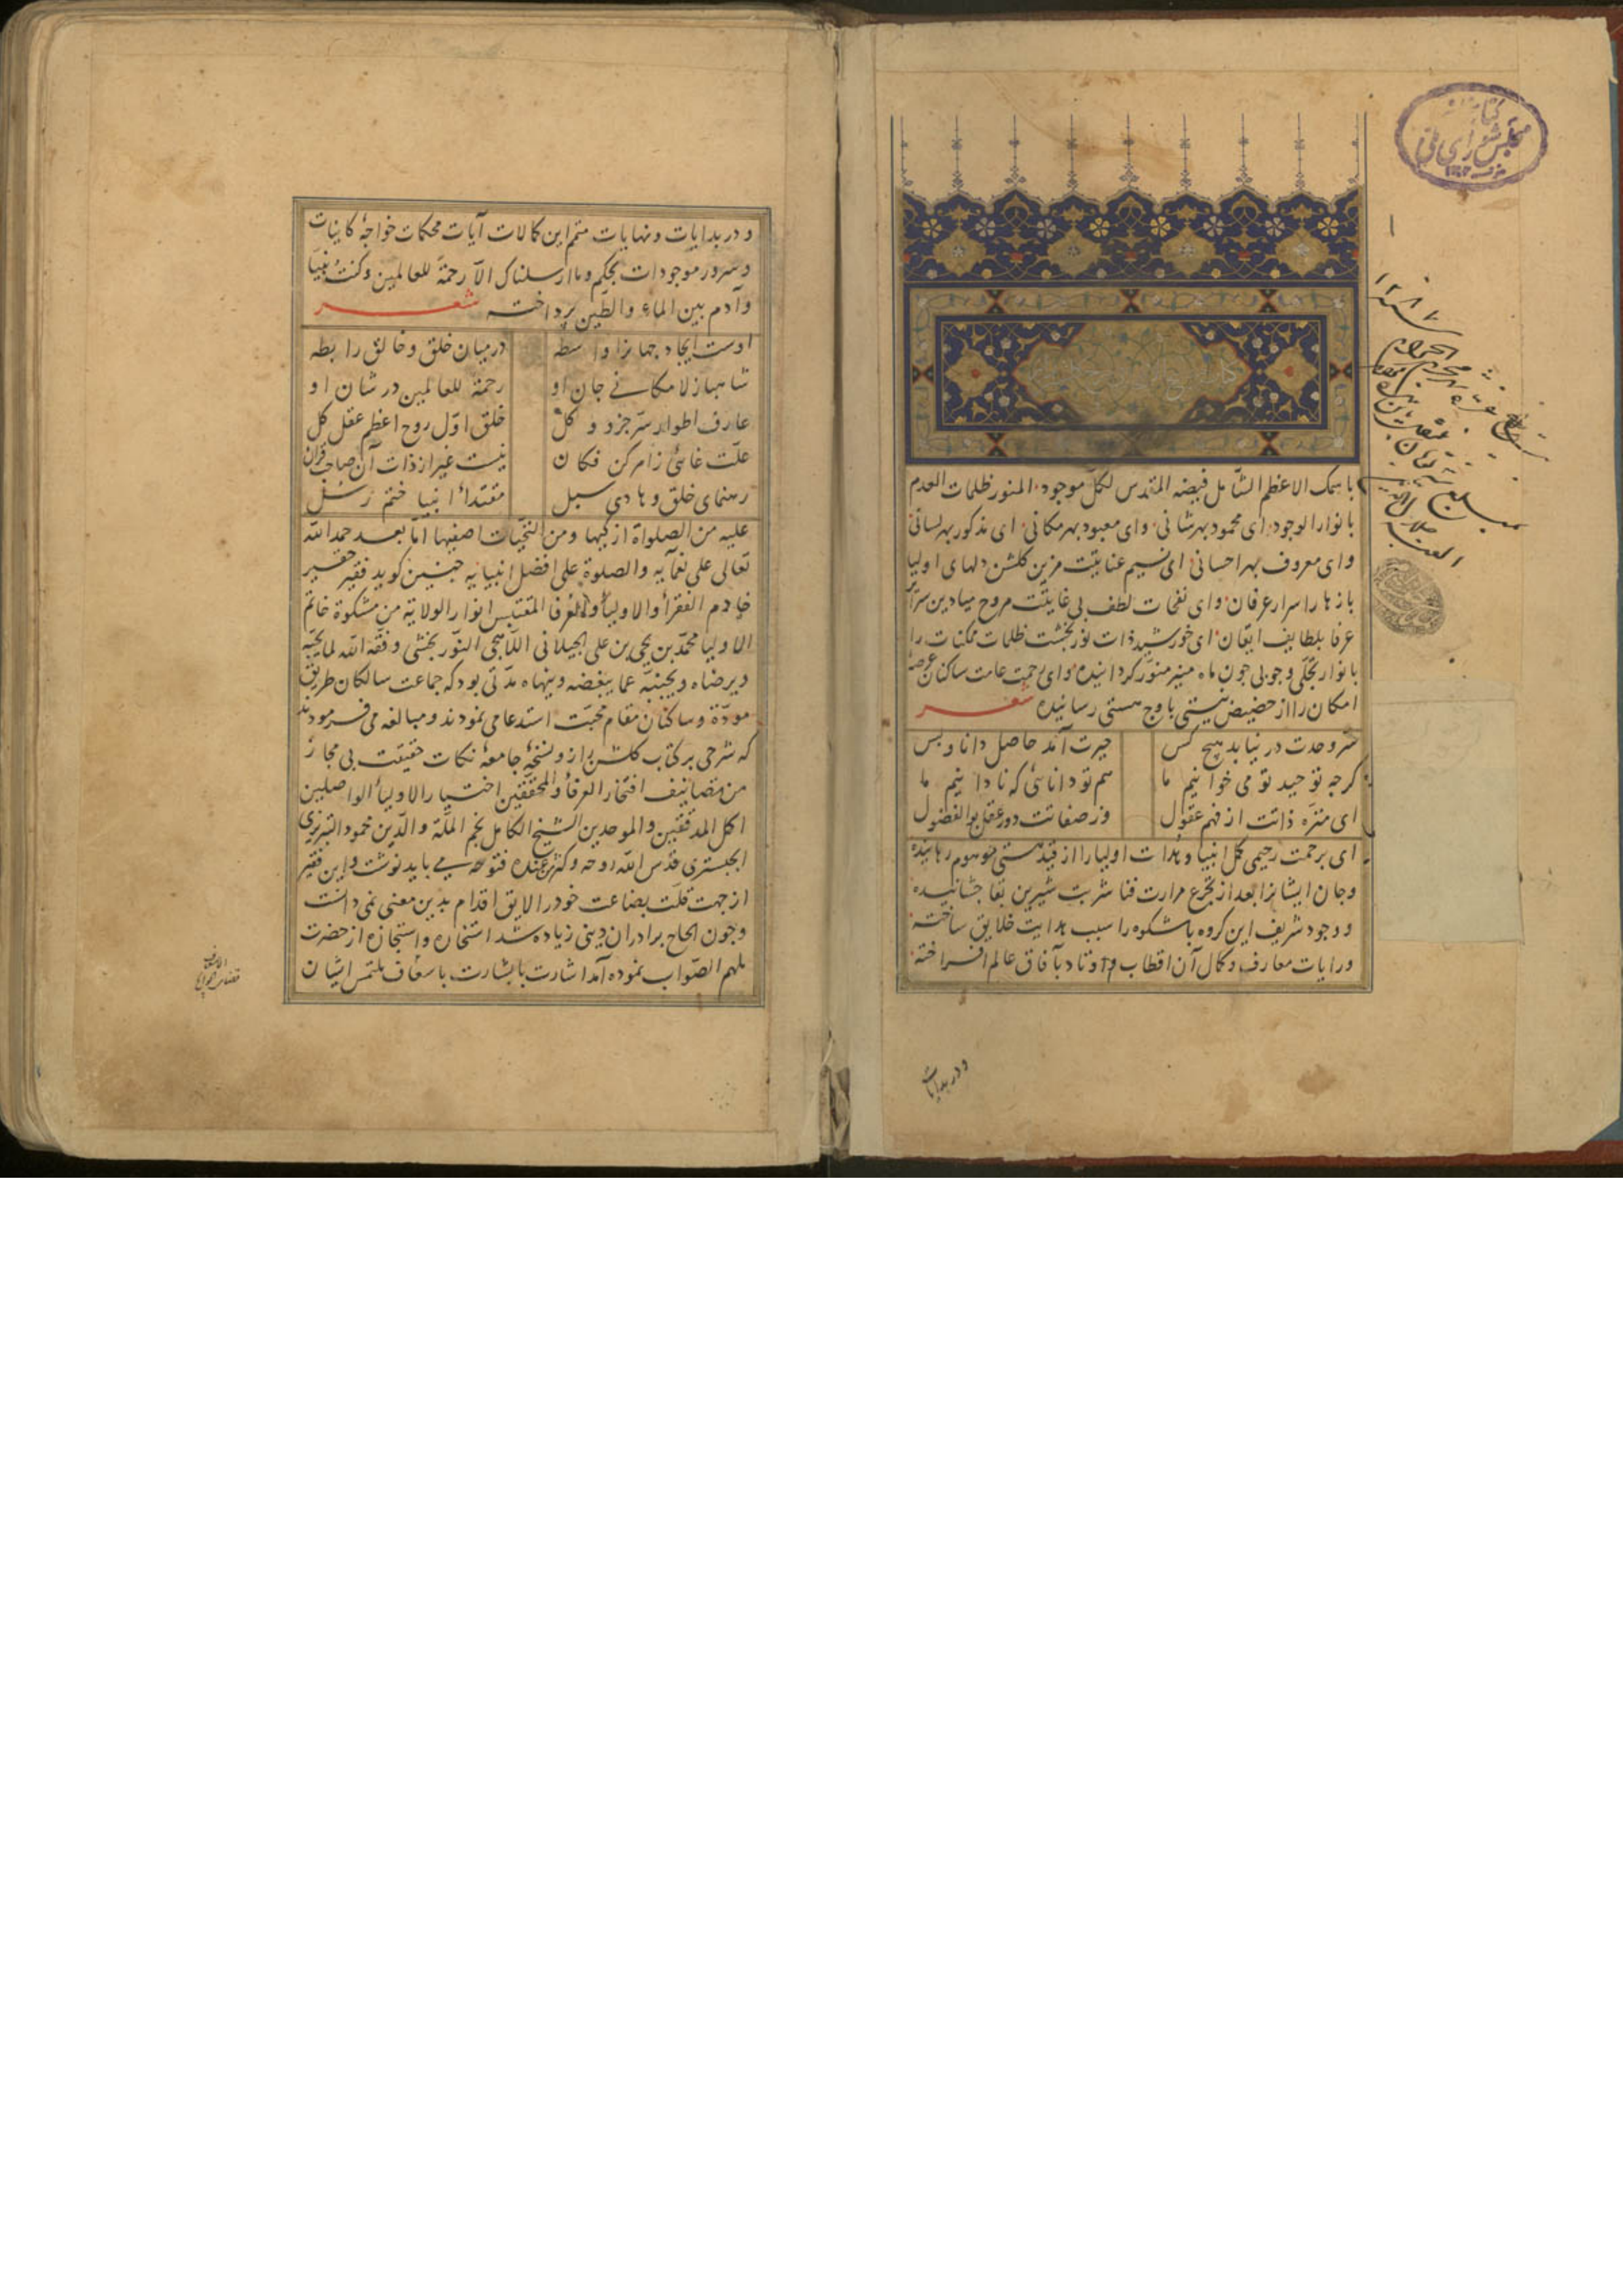 باسمک الاعظم الشامل فیضه المقدس لکل موجود المنور ظلمات العدم
بانوار الوجود ای محمود بهر شانی وای معبود بهر مکانی ای مذکور بهر لسانی
وای معروف بهر احسانی ای نسیم عنایتت مزین کلشن دلهای اولیا
بازهار اسرار عرفان وای نفحات لطف بی غایتت مروح میادین سرائر
عرفا بلطایف ایقان ای خورشید ذات نوربخشت ظلمات ممکنات را
بانوار تجلی وجوبی جون ماه منیر منور کردانیده وای رحمت عامت ساکنان عرصهٔ
امکان را از حضیض نیستی باوج هستی رسانیده شعر
سر وحدت در نیابد هیچ کس حیرت آمد حاصل دانا و بس
کرچه توحید تو می خوانیم ما هم تو دانائی که نادانیم ما
ای منزه ذاتت از فهم عقول وز صفاتت دور عقل بوالفضول
ای برحمت رحیمی کمل انبیا وهداة اولیا را از قید هستی موهوم رهانیده
وجان ایشانرا بعد از تجرع مرارت فنا شربت شیرین بقا جشانیده
ووجود شریف این کروه باشکوه را سبب هدایت خلایق ساخته
ورایات معارف وکمال آن اقطاب واوتاد بآفاق عالم افراخته
ودر بدایات
۱
۱۲۸۷
کتابخانه
مجلس شورای ملی
ودر بدایات ونهایات متمم این کمالات آیات محکمات خواجهٔ کاینات
وسرور موجودات بحکم وما ارسلناک الا رحمة للعالمین وکنت نبیا
وآدم بین الماء والطین پرداخته شعر
اوست ایجاد جهانرا واسطه در میان خلق وخالق رابطه
شاهباز لامکانی جان او رحمة للعالمین در شان او
عارف اطوار سر جزو و کل خلق اول روح اعظم عقل کل
علت غائی ز امر کن فکان نیست غیر از ذات آن صاحب قران
رهنمای خلق وهادی سبل مقتداء انبیا ختم رسل
علیه من الصلواة ازکیها ومن التحیات اصفیها اما بعد حمد الله
تعالی علی نعمائه والصلوة علی افضل انبیائه جنین کوید فقیر حقیر
خادم الفقراء والاولیاء والعرفا المقتبس انوار الولایة من مشکوة خاتم
الاولیا محمد بن یحیی بن علی الجیلانی اللاهجی النوربخشی وفقه الله لما یحبه
ویرضاه ویجنبه عما یبغضه وینهاه مدتی بود که جماعت سالکان طریق
مودة وساکنان مقام محبت استدعا می نمودند ومبالغه می فرمودند
که شرحی بر کتاب کلشن راز ونسخهٔ جامعهٔ نکات حقیقت بی مجاز
من تصانیف افتخار العرفاء والمحققین اختیار الاولیاء الواصلین
اکمل المدققین والموحدین الشیخ الکامل نجم الملة والدین محمود التبریزی
الجبستری قدس الله روحه وکثر عنده فتوحه می باید نوشت واین فقیر
از جهت قلت بضاعت خود را لایق اقدام بدین معنی نمی دانست
وجون الحاح برادران دینی زیاده شد استخاره واستجازه از حضرت
ملهم الصواب نموده آمد اشارت بابشارت باسعاف ملتمس ایشان